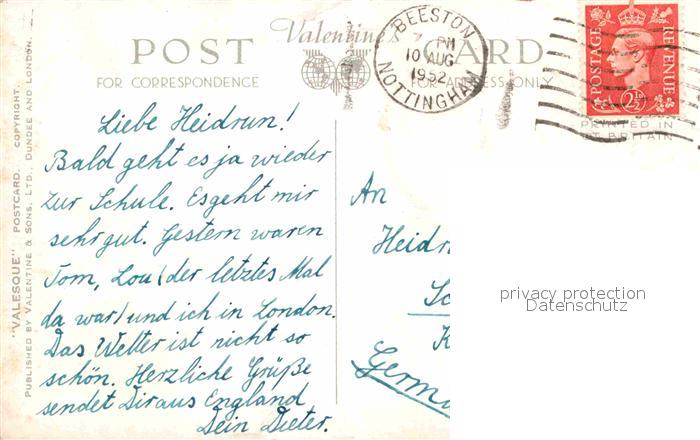 POST CARD
Valentine's
FOR CORRESPONDENCE
FOR ADDRESS ONLY
"VALESQUE" POSTCARD. COPYRIGHT.
PUBLISHED BY VALENTINE & SONS, LTD., DUNDEE AND LONDON.
BEESTON
PM
10 AUG
1952
NOTTINGHAM
POSTAGE
REVENUE
2½D
PRINTED IN
GT BRITAIN
Liebe Heidrun!
Bald geht es ja wieder
zur Schule. Es geht mir
sehr gut. Gestern waren
Tom, Lou (der letztes Mal
da war) und ich in London.
Das Wetter ist nicht so
schön. Herzliche Grüße
sendet Dir aus England
Dein Dieter.
An
Heidr
Sc
K
Germ
privacy protection
Datenschutz